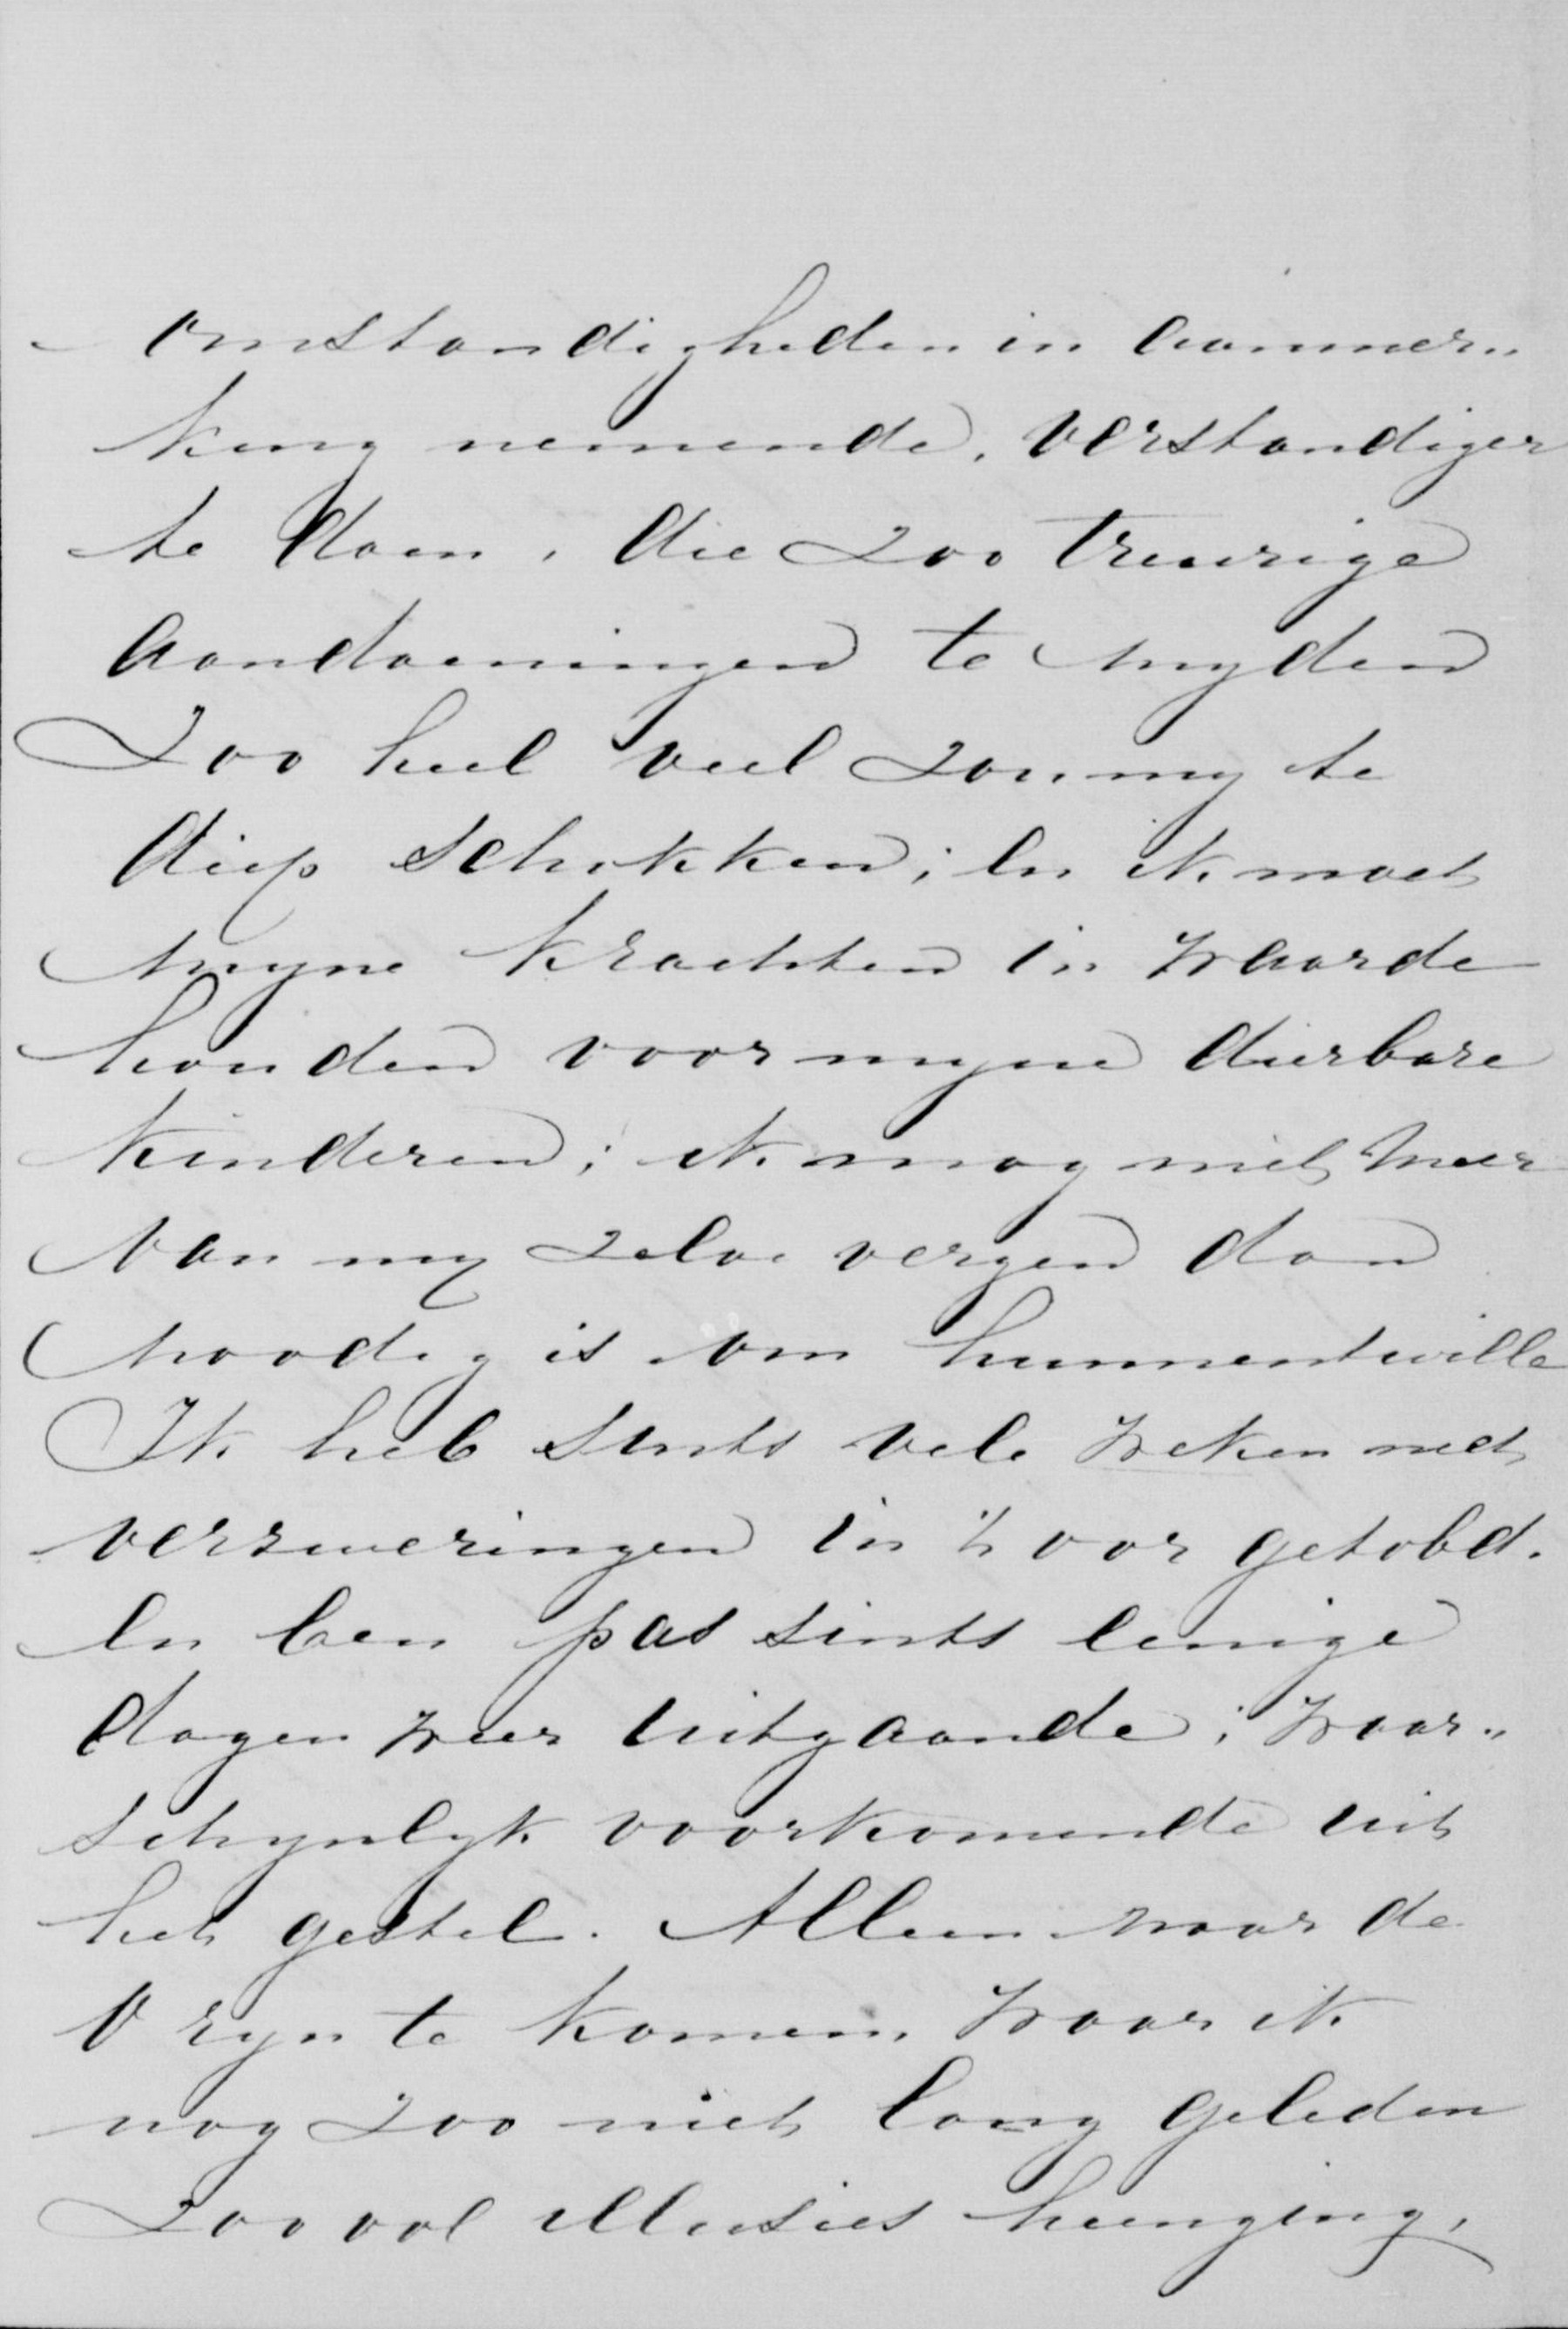 omstandigheden in aanmer„
king nemende, verstandiger
te doen, die zoo treurige
aandoeningen te myden
Zoo heel veel zou my te
diep schokken; en ik moet
myne krachten in waarde
houden voor myne dierbare
kinderen; ik mag niet meer
van my zelve vergen dan
noodig is om hunnentwille
Ik heb sints vele weken met
verzweringen in 't oor getobd.
en ben pas sints eenige
dagen weer uitgaande; waar„
schynlyk voorkomende uit
het gestel. Alleen naar de
Vryn te komen, waar ik
nog zoo niet lang geleden
zoo vol illusies heenging,